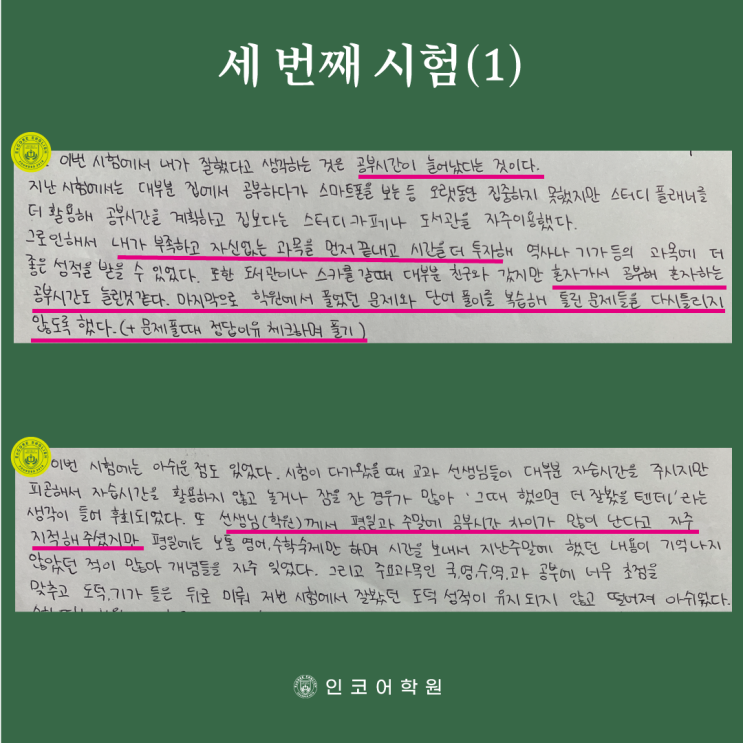 세 번째 시험(1)
이번 시험에서 내가 잘했다고 생각하는 것은 공부시간이 늘어났다는 것이다.
지난 시험에서는 대부분 집에서 공부하다가 스마트폰을 보는 등 오랫동안 집중하지 못했지만 스터디 플래너를
더 활용해 공부시간을 계획하고 집보다는 스터디 카페나 도서관을 자주이용했다.
그로인해서 내가 부족하고 자신없는 과목을 먼저 끝내고 시간을 더 투자해 역사나 기가 등의 과목에 더
좋은 성적을 받을 수 있었다. 또한 도서관이나 스카를 갈때 대부분 친구와 갔지만 혼자가서 공부해 혼자하는
공부시간도 늘린것같다. 마지막으로 학원에서 풀었던 문제와 단어 풀이를 복습해 틀린 문제들을 다시틀리지
않도록 했다. (+ 문제풀때 정답이유 체크하며 풀기)
이번 시험에는 아쉬운 점도 있었다. 시험이 다가왔을 때 교과 선생님들이 대부분 자습시간을 주시지만
피곤해서 자습시간을 활용하지 않고 놀거나 잠을 잔 경우가 많아 '그때 했으면 더 잘봤을 텐데' 라는
생각이 들어 후회되었다. 또 선생님(학원)께서 평일과 주말에 공부시간 차이가 많이 난다고 자주
지적해 주셨지만 평일에는 보통 영어, 수학숙제만 하며 시간을 보내서 지난주말에 했던 내용이 기억나지
않았던 적이 많아 개념들을 자주 잊었다. 그리고 주요과목인 국,영,수,역,과 공부에 너무 초점을
맞추고 도덕, 기가 들은 뒤로 미뤄 저번 시험에서 잘봤던 도덕 성적이 유지 되지 않고 떨어져 아쉬웠다.
인코어학원